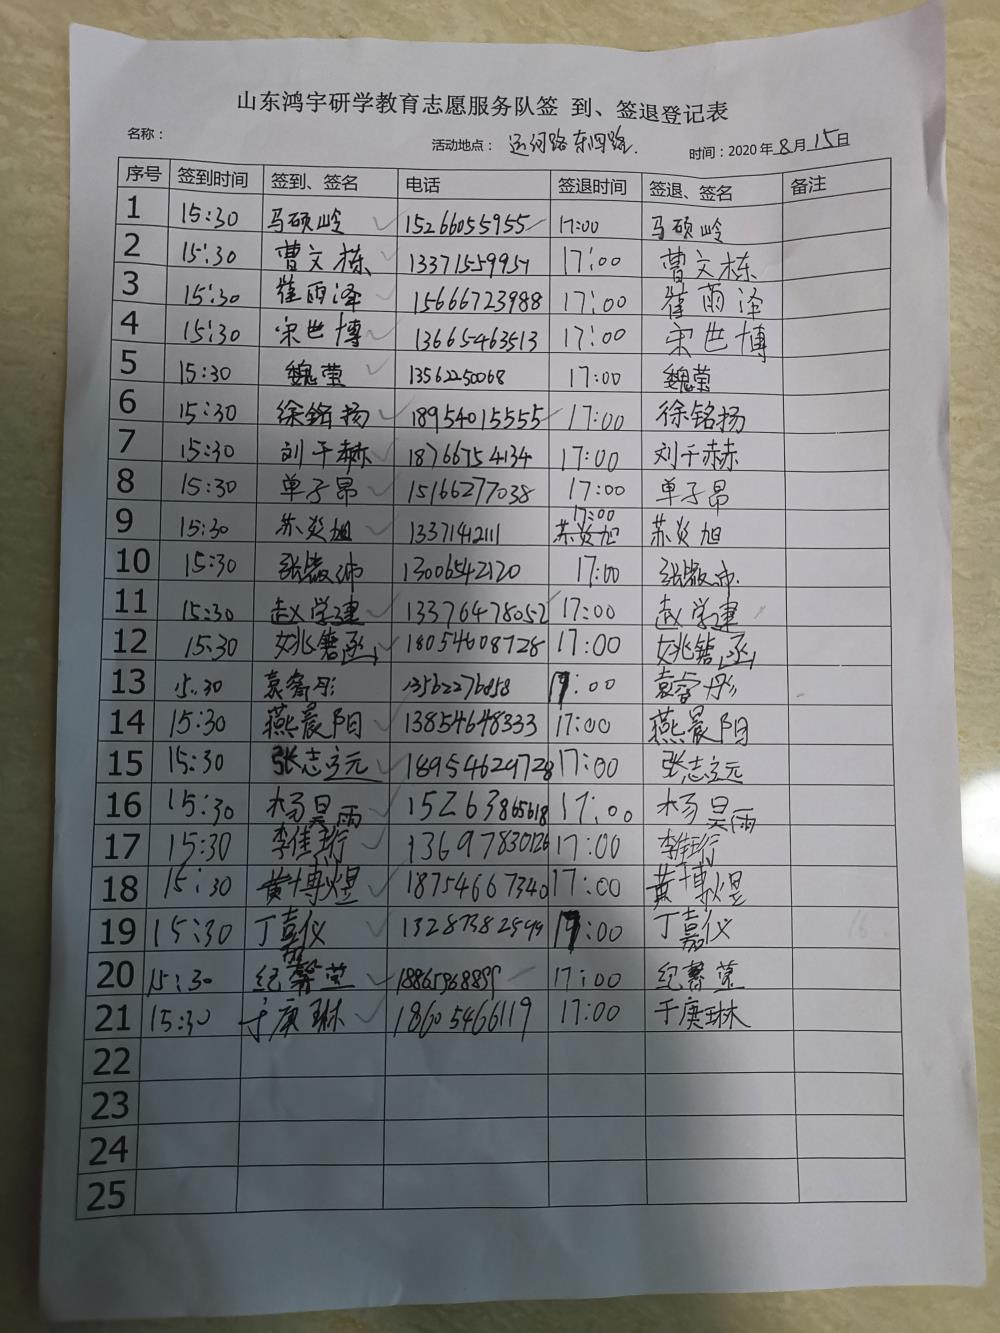 山东鸿宇研学教育志愿服务队签 到、签退登记表
名称： 活动地点： 运河路东四路. 时间：2020年8月15日
序号 签到时间 签到、签名 电话 签退时间 签退、签名 备注
1 15:30 马硕岭 15266055955 17:00 马硕岭
2 15:30 曹文栋 13371559951 17:00 曹文栋
3 15:30 崔雨泽 15666723988 17:00 崔雨泽
4 15:30 宋世博 13665463513 17:00 宋世博
5 15:30 魏莹 13562250068 17:00 魏莹
6 15:30 徐铭扬 18954015555 17:00 徐铭扬
7 15:30 刘干赫 18766754134 17:00 刘干赫
8 15:30 单子昂 15166277038 17:00 单子昂
9 15:30 苏炎旭 13371412111 17:00 苏炎旭 苏炎旭
10 15:30 张 沛 13006542120 17:00 张 沛
11 15:30 赵学建 13376478052 17:00 赵学建
12 15:30 姚 函 18054608728 17:00 姚 函
13 15:30 袁睿彤 13562276058 17:00 袁睿彤
14 15:30 燕晨阳 13854648333 17:00 燕晨阳
15 15:30 张志元 18954629728 17:00 张志元
16 15:30 杨昊雨 15263865618 17:00 杨昊雨
17 15:30 李佳珩 13697830126 17:00 李佳珩
18 15:30 黄博煜 18754667340 17:00 黄博煜
19 15:30 丁嘉仪 17:00 丁嘉仪
20 15:30 纪馨莹 18865968899 17:00 纪馨莹
21 15:30 于庚琳 18605466119 17:00 于庚琳
22
23
24
25